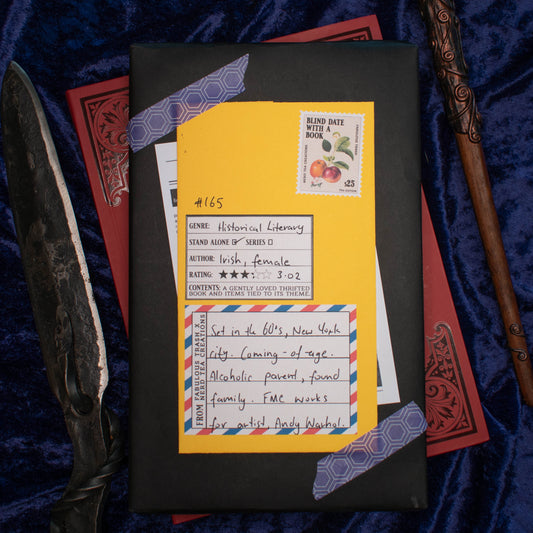 BLIND DATE
WITH A
BOOK
$25
#165
GENRE: Historical Literary
STAND ALONE ☑ SERIES ☐
AUTHOR: Irish, female
RATING: ★★★☆☆ 3.02
CONTENTS: A GENTLY LOVED THRIFTED
BOOK AND ITEMS TIED TO ITS THEME.
FROM FABULOUS TRASH X
NERD TEA CREATIONS
Set in the 60's, New York
city. Coming-of-age.
Alcoholic parent, found
family. FMC works
for artist, Andy Warhol.